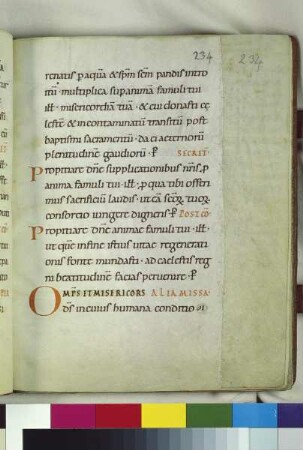 234 234
renatis p aqua & spm scm pandis intro
itu · multiplica sup anima famuli tui
ill · misericordia tua · & cui donasti ce
leste & incontaminatu transitu post
baptismi sacramentu · da ei aeternoru
plenitudine gaudioru · P SECRET
Propitiare dne supplicationibus nris, p
anima famuli tui · ill · p qua tibi offeri
mus sacrificiu laudis · ut ea scoR tuoR
consortio iungere digneris · P POST CO
Propitiare dne animae famuli tui · ill ·
ut que in fine istius uitae regenerati
onis fonte mundasti · ad caelestis reg
ni beatitudine facias peruenire · P
OMPS ET MISERICORS ALIA MISSA
ds in cuius humana conditio